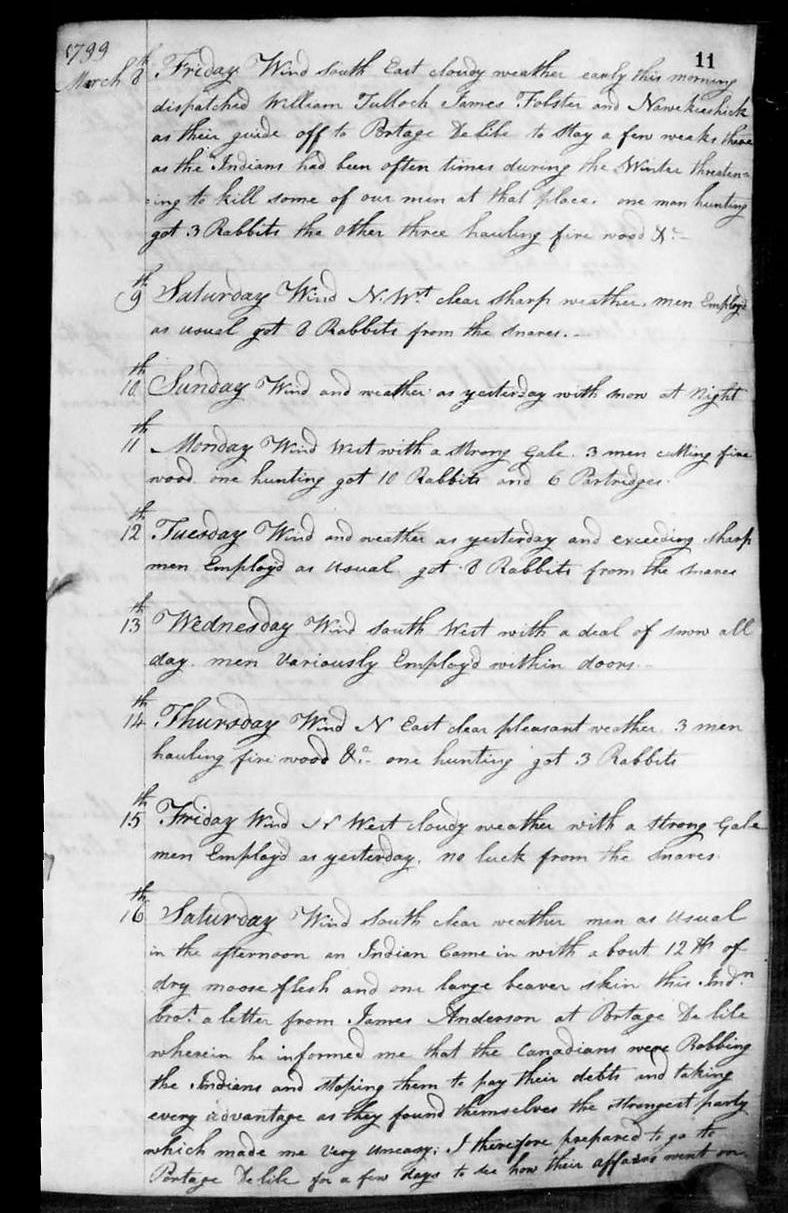 1799
11
March 8th Friday Wind South East cloudy weather early this morning
dispatched William Tulloch James Folster and Nawekeshick
as their guide off to Portage De lile to stay a few weaks there
as the Indians had been often times during the Winter threten=
=ing to kill some of our men at that place. one man hunting
got 3 Rabbits the other three hauling fire wood &c
9th Saturday Wind N.Wt clear sharp weather. men Employd
as usual got 8 Rabbits from the snares.
10th Sunday Wind and weather as yesterday with snow at Night
11th Monday Wind West with a strong Gale. 3 men cutting fire
wood. one hunting got 10 Rabbits and 6 Partridges.
12th Tuesday Wind and weather as yesterday and exceeding sharp
men Employd as usual got 8 Rabbits from the snares
13th Wednesday Wind South West with a deal of snow all
day. men Variously Employd within doors.
14th Thursday Wind N East clear pleasant weather. 3 men
hauling fire wood &c one hunting got 3 Rabbits
15th Friday Wind N West cloudy weather with a strong Gale
men Employd as yesterday. no luck from the snares.
16th Saturday Wind South clear weather men as Usual
in the afternoon an Indian Came in with about 12 lb of
dry moose flesh and one large beaver skin this Indn
brot a letter from James Anderson at Portage De lile
wherein he informed me that the Canadians were Robbing
the Indians and stoping them to pay their debts and taking
every advantage as they found themselves the strongest party
which made me very uneasy; I therefore prepared to go to
Portage De lile for a few days to see how their affairs went on